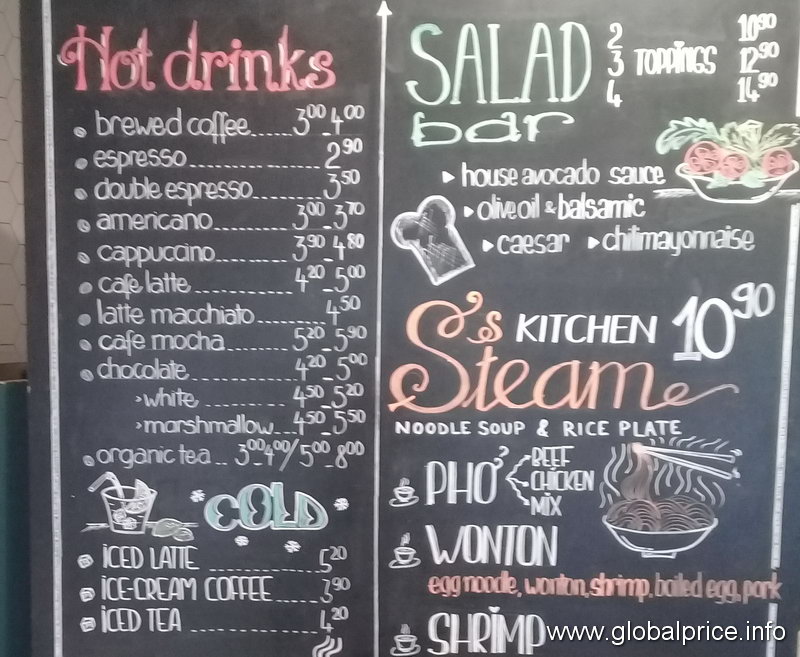 Hot drinks
brewed coffee 3.00-4.00
espresso 2.90
double espresso 3.50
americano 3.00-3.70
cappuccino 3.90-4.80
cafe latte 4.20-5.00
latte macchiato 4.50
cafe mocha 5.20-5.90
chocolate 4.20-5.00
>white 4.50-5.20
>marshmallow 4.50-5.50
organic tea 3.00-4.00/5.00-8.00
COLD
ICED LATTE 5.20
ICE-CREAM COFFEE 3.90
ICED TEA 4.20
SALAD
bar
2 10.90
3 TOPPINGS 12.90
4 14.90
house avocado sauce
olive oil & balsamic
caesar chilimayonnaise
S's KITCHEN 10.90
Steam
NOODLE SOUP & RICE PLATE
PHO'
BEEF
CHICKEN
MIX
WONTON
egg noodle, wonton, shrimp, boiled egg, pork
SHRIMP
www.globalprice.info